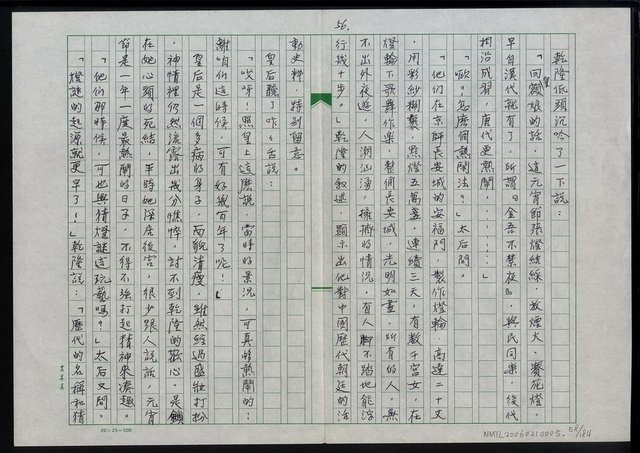 56.
乾隆低頭沉吟了一下說：
「回皇額娘的話，這元宵節張燈結綵，放煙火，賽花燈，
早自漢代就有了，所謂『金吾不禁夜』，與民同樂，後代
相沿成習，唐代更熱鬧，……」
「哦？怎麼個熱鬧法？」太后問。
「他們在京師長安城的安福門，製作燈輪，高達二十丈
，用彩紗糊裝，點燈五萬盞，連續三天，有數千宮女，在
燈輪下歌舞作樂，整個長安城，光明如晝，所有的人，無
不出外夜遊，人潮汹湧，擁擠的情況，有人腳不踏地能浮
行幾十步。」乾隆的敘述，顯示出他對中國歷代朝廷的活
動史料，特別留意。
皇后聽了咋咋舌說：
「哎呀！照皇上這麼說，當時的景況，可真夠熱鬧的！
離咱們這時候，可有好幾百年了呢！」
皇后是一個多病的身子，面貌清瘦，雖然經過盛妝打扮
，神情裡仍然流露出幾分憔悴，討不到乾隆的歡心，是鎖
在她心頭的死結，平時她深居後宮，很少跟人說話，元宵
節是一年一度最熱鬧的日子，不得不強打起精神來湊趣。
「他們那時候，可也興猜燈謎這玩藝嗎？」太后又問。
「燈謎的起源就更早了！」乾隆說：「歷代的名稱和猜
20×25=500
NMTL20060210005.
58/184